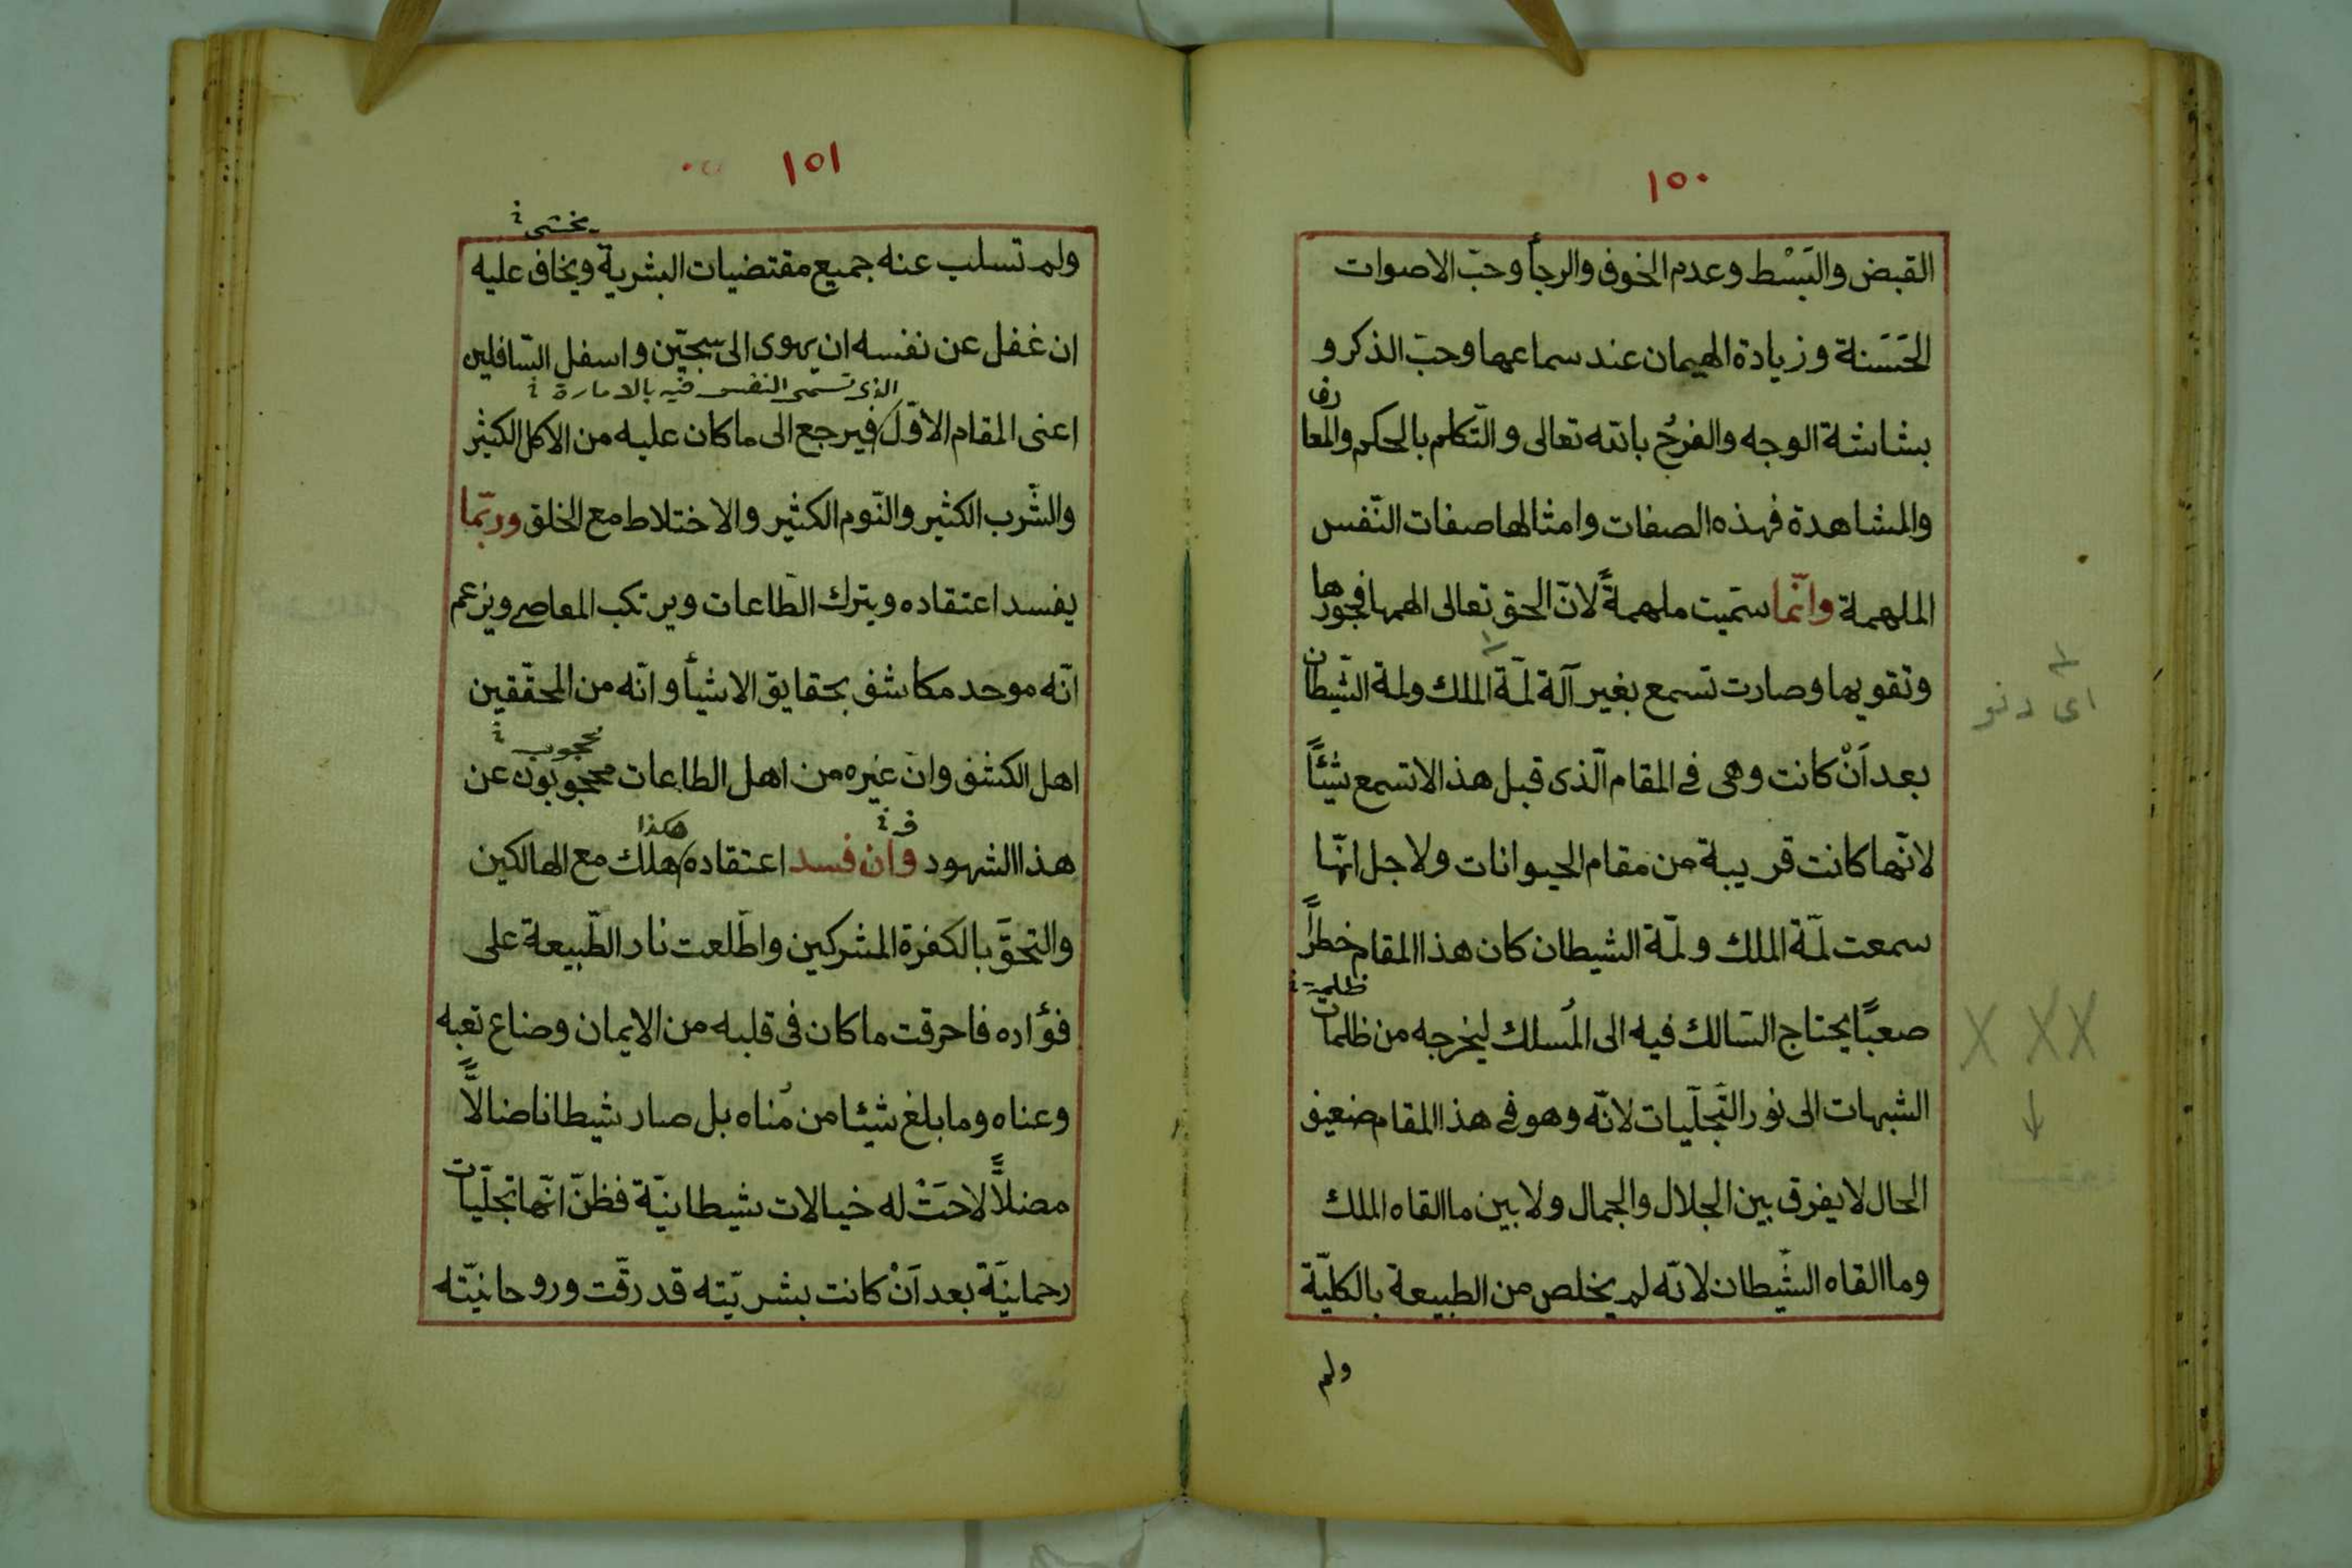 ١٥٠
القبض والبَسْط وعدم الخوف والرجأ وحبّ الاصوات
الحَسَنة وزيادة الهيمان عند سماعها وحبّ الذكر و
بشاشة الوجه والفرحُ بالله تعالى والتّكلم بالحكم والمعارف
والمشاهدة فهذه الصفات وامثالها صفات النّفس
الملهمة وانّما سمّيت ملهمةً لانّ الحق تعالى الهمها فجورها
وتقويها وصارت تسمع بغير آلة لمّة الملك ولمة الشّيطان
اى دنو
بعد اَنْ كانت وهى فى المقام الّذى قبل هذا لا تسمع شيئًا
لانّها كانت قريبة من مقام الحيوانات ولاجل انّها
سمعت لمّة الملك ولمّة الشيطان كان هذا المقام خطراً
ظلمة
صعبًا يحتاج السّالك فيه الى المُسلك ليخرجه من ظلمات
الشبهات الى نور التّجلّيات لانّه وهو فى هذا المقام ضعيف
الحال لا يفرق بين الجلال والجمال ولا بين ما القاه الملك
وما القاه الشّيطان لانّه لم يخلص من الطبيعة بالكليّة
ولم
١٥١
يخشى
ولم تسلب عنه جميع مقتضيات البشرية ويخاف عليه
ان غفل عن نفسه ان يهوى الى سجّين واسفل السّافلين
الذى تسمى النفس فيه بالامارة
اعنى المقام الاوّل فيرجع الى ما كان عليه من الاكل الكثير
والشّرب الكثير والنّوم الكثير والاختلاط مع الخلق وربّما
يفسد اعتقاده ويترك الطّاعات ويرتكب المعاصى ويزعم
انّه موحد مكاشف بحقايق الاشيأ وانّه من المحقّقين
محجوب
اهل الكشف وانّ غيره من اهل الطاعات محجوبون عن
ف هكذا
هذا الشهود وان فسد اعتقاده هلك مع الهالكين
والتحقَ بالكفرة المشركين واطّلعت نار الطّبيعة على
فؤاده فاحرقت ما كان فى قلبه من الايمان وضاع تعبه
وعناه وما بلغ شيئا من مُناه بل صار شيطانا ضالاًّ
مضلاًّ لاحَتْ له خيالات شيطانيّة فظنّ انّها تجلّيات
رحمانيّة بعد اَنْ كانت بشريّته قد رقّت وروحانيّته